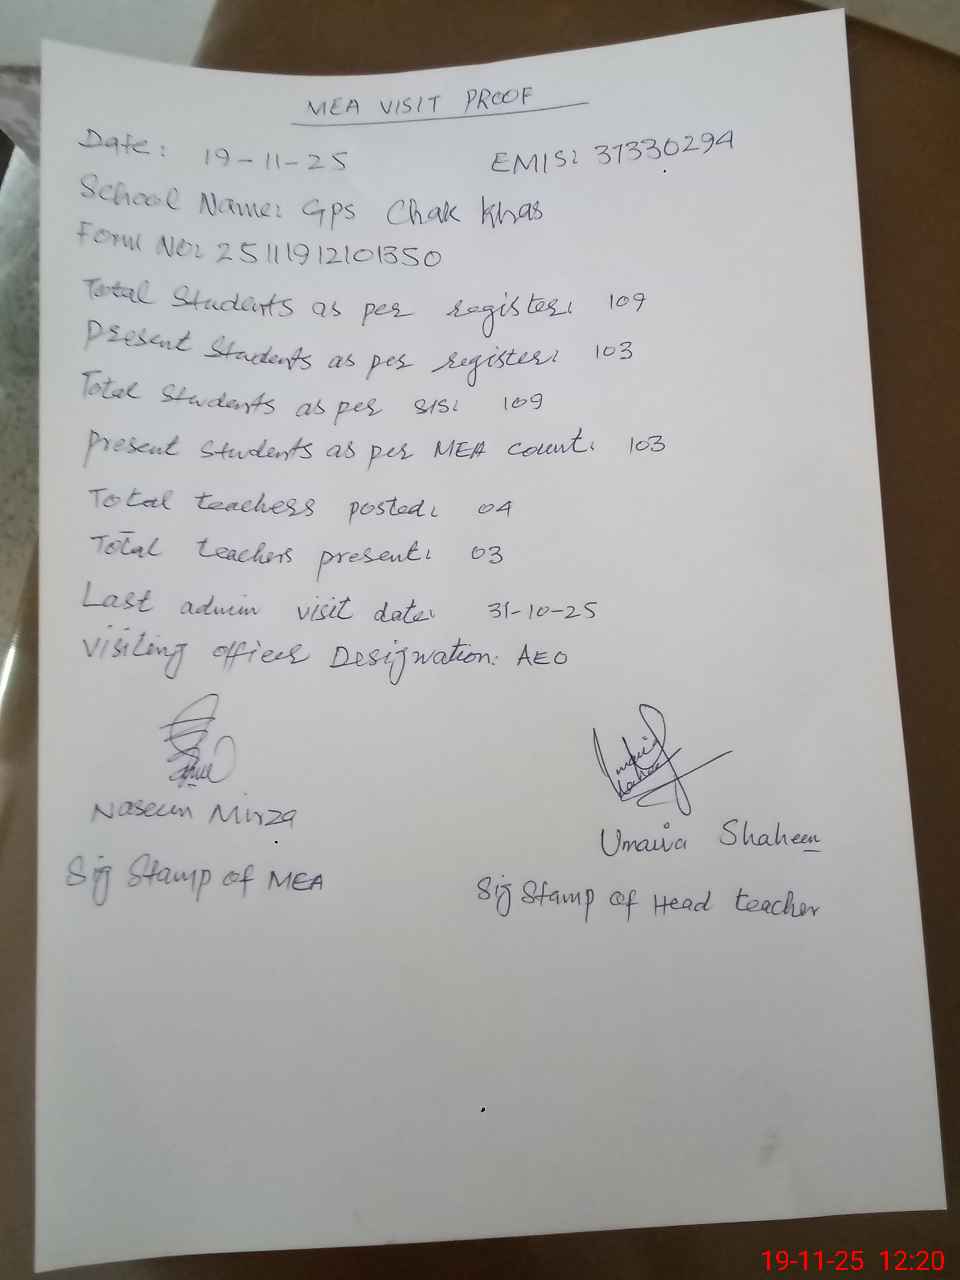 MEA VISIT PROOF
Date: 19-11-25 EMIS: 37330294
School Name: GPS Chak Khas
Form No: 25111912101350
Total Students as per register: 109
Present Students as per register: 103
Total Students as per SIS: 109
Present Students as per MEA count: 103
Total teachers posted: 04
Total teachers present: 03
Last admin visit date: 31-10-25
Visiting officer Designation: AEO
Naseem Mirza
Umaira Shaheen
Sig Stamp of MEA
Sig Stamp of Head teacher
19-11-25 12:20